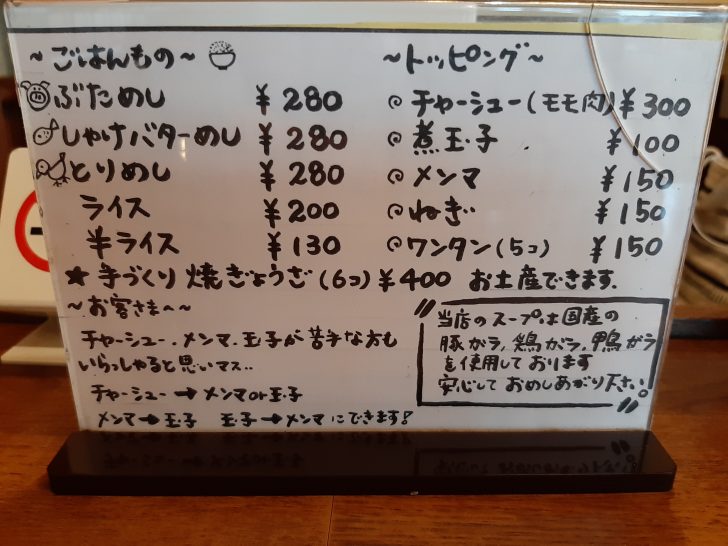 ～ごはんもの～
ぶためし ¥280
しゃけバターめし ¥280
とりめし ¥280
ライス ¥200
半ライス ¥130
～トッピング～
チャーシュー(モモ肉) ¥300
煮玉子 ¥100
メンマ ¥150
ねぎ ¥150
ワンタン(5コ) ¥150
★ 手づくり焼ぎょうざ(6コ) ¥400 お土産できます.
～お客さまへ～
チャーシュー.メンマ.玉子が苦手な方も
いらっしゃると思いマス..
チャーシュー→メンマor玉子
メンマ→玉子 玉子→メンマにできます!
当店のスープは国産の
豚ガラ,鶏ガラ,鴨ガラ
を使用しております
安心しておめしあがり下さい!